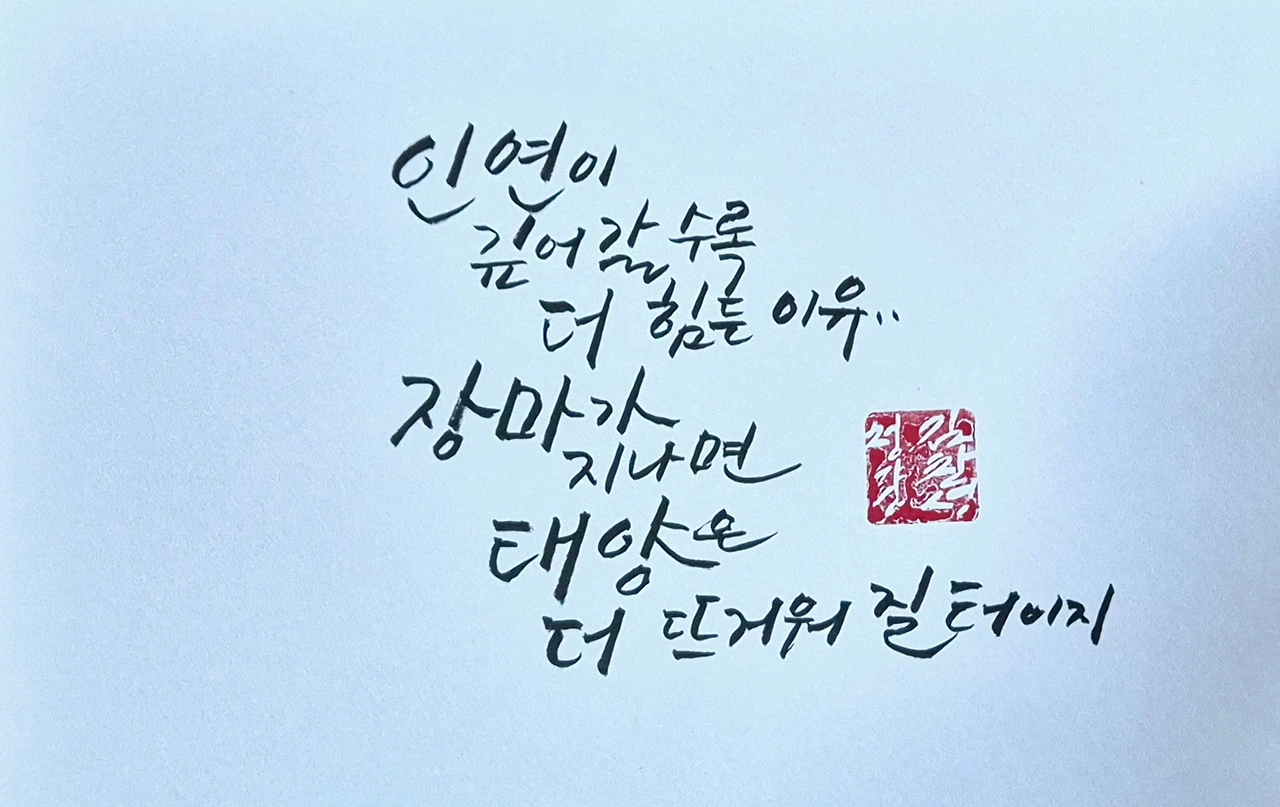 인연이
깊어 갈 수록
더 힘든 이유..
장마가
지나면
태양은
더 뜨거워 질 터이지